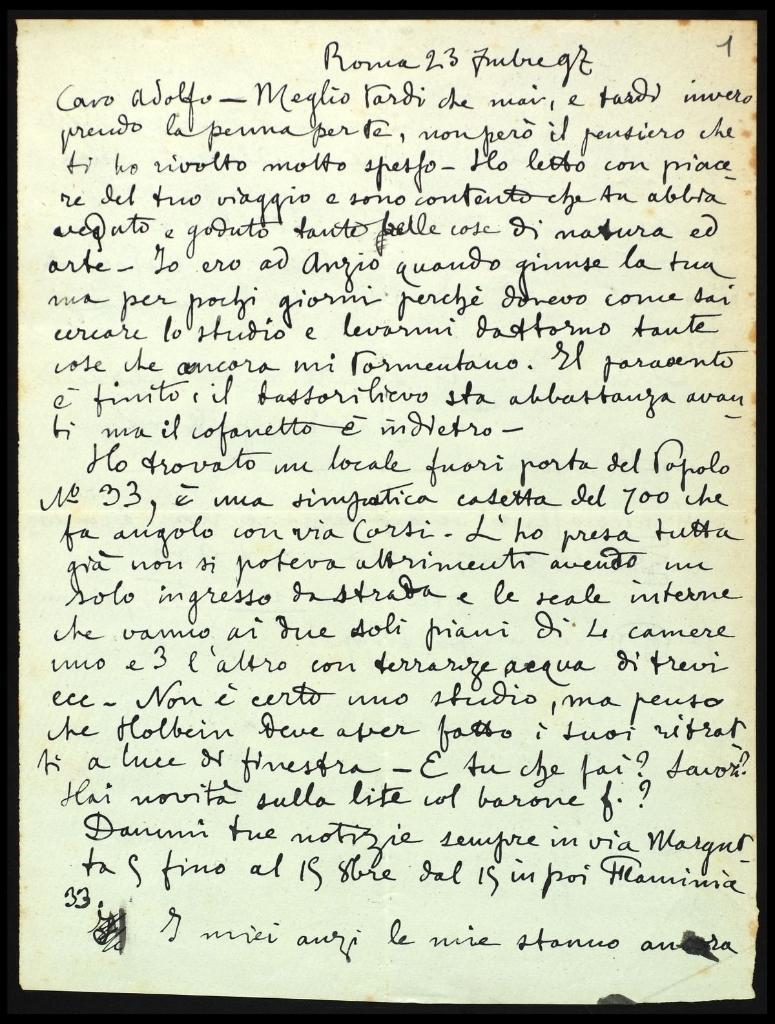 1
Roma 23 7mbre 97
Caro Adolfo — Meglio tardi che mai, e tardi invero
prendo la penna per te, non però il pensiero che
ti ho rivolto molto spesso — Ho letto con piace-
re del tuo viaggio e sono contento che tu abbia
veduto e goduto tante belle cose di natura ed
arte — Io ero ad Anzio quando giunse la tua
ma per pochi giorni perchè dovevo come sai
cercare lo studio e levarmi dattorno tante
cose che ancora mi tormentano. Il
è finito; il bassorilievo sta abbastanza avan-
ti ma il cofanetto è indietro —
Ho trovato un locale fuori porta del Popolo
No 33, è una simpatica casetta del 700 che
fa angolo con via Corsi — L'ho presa tutta
già non si poteva altrimenti avendo un
solo ingresso da strada e le scale interne
che vanno ai due soli piani di 4 camere
uno e 3 l'altro con terrazze acqua di trevi
ecc — Non è certo uno studio, ma penso
che Holbein deve aver fatto i suoi ritrat-
ti a luce di finestra — E tu che fai? Lavori?
Hai novità sulla lite col barone f. ?
Dammi tue notizie sempre in via Margut-
ta 5 fino al 15 8bre dal 15 in poi Flaminia
33.
I miei anzi le mie stanno ancora